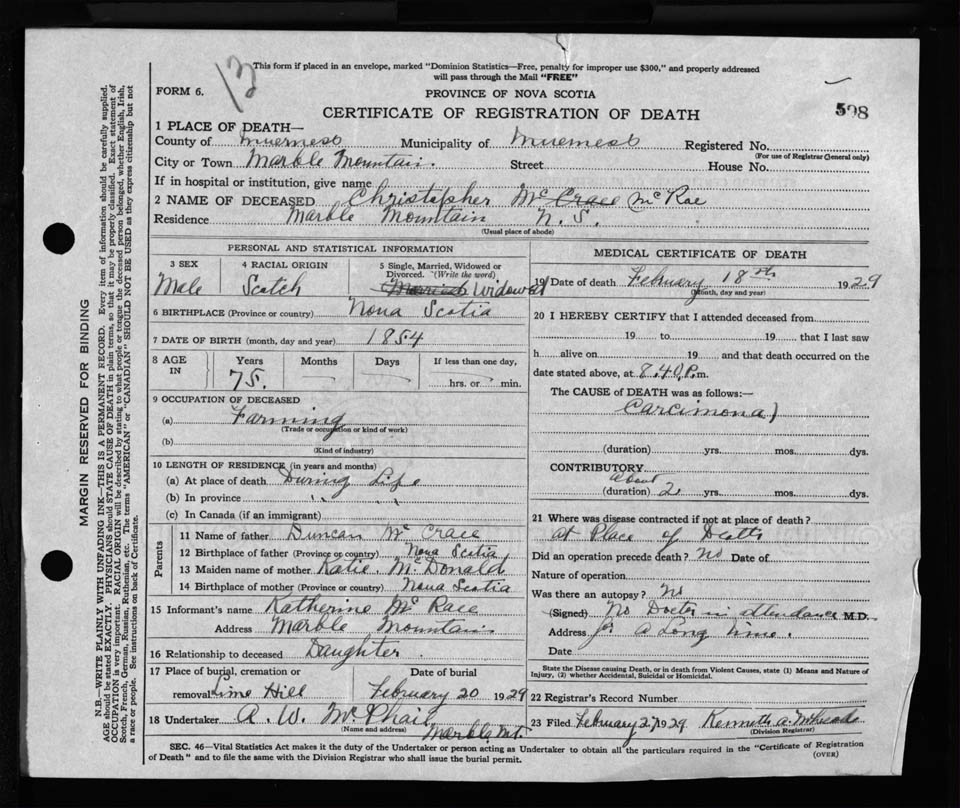 13
This form if placed in an envelope, marked "Dominion Statistics—Free, penalty for improper use $300," and properly addressed
will pass through the Mail "FREE"
FORM 6.
PROVINCE OF NOVA SCOTIA
598
CERTIFICATE OF REGISTRATION OF DEATH
1 PLACE OF DEATH—
County of Inverness Municipality of Inverness Registered No.
(For use of Registrar General only)
City or Town Marble Mountain. Street House No.
If in hospital or institution, give name
2 NAME OF DECEASED Christopher Mc Crae Mc Rae
Residence Marble Mountain N. S.
(Usual place of abode)
PERSONAL AND STATISTICAL INFORMATION
3 SEX
Male
4 RACIAL ORIGIN
Scotch
5 Single, Married, Widowed or
Divorced. (Write the word)
Married Widowed
6 BIRTHPLACE (Province or country) Nova Scotia
7 DATE OF BIRTH (month, day and year) 1854
8 AGE IN
Years Months Days If less than one day,
75. — — hrs. or min.
9 OCCUPATION OF DECEASED
(a) Farming
(Trade or occupation or kind of work)
(b)
(Kind of industry)
10 LENGTH OF RESIDENCE (in years and months)
(a) At place of death During Life
(b) In province " "
(c) In Canada (if an immigrant)
Parents
11 Name of father Duncan Mc Crae
12 Birthplace of father (Province or country) Nova Scotia
13 Maiden name of mother Katie McDonald
14 Birthplace of mother (Province or country) Nova Scotia
15 Informant's name Katherine Mc Race
Address Marble Mountain
16 Relationship to deceased Daughter.
17 Place of burial, cremation or Date of burial
removal Lime Hill February 20 1929
18 Undertaker A. W. McPhail
(Name and address) Marble Mt.
MEDICAL CERTIFICATE OF DEATH
19 Date of death February 18th 1929
(Month, day and year)
20 I HEREBY CERTIFY that I attended deceased from
19 to 19 that I last saw
h alive on 19 and that death occurred on
date stated above, at 8.40 P.m.
The CAUSE OF DEATH was as follows:—
Carcimona)
(duration) yrs. mos. dys.
CONTRIBUTORY
About
(duration) 2 yrs. mos. dys.
21 Where was disease contracted if not at place of death?
at Place of Death
Did an operation precede death? no Date of
Nature of operation
Was there an autopsy? No
(Signed) No Doctor in attendance M.D.
Address for a Long time.
Date
State the Disease causing Death, or in death from Violent Causes, state (1) Means and Nature of
Injury, (2) whether Accidental, Suicidal or Homicidal.
22 Registrar's Record Number
23 Filed February 27 1929 Kenneth A.
(Division Registrar)
SEC. 46—Vital Statistics Act makes it the duty of the Undertaker or person acting as Undertaker to obtain all the particulars required in the "Certificate of Registration
of Death" and to file the same with the Division Registrar who shall issue the burial permit.
(OVER)
MARGIN RESERVED FOR BINDING
N.B.—WRITE PLAINLY WITH UNFADING INK—THIS IS A PERMANENT RECORD. Every item of information should be carefully supplied.
AGE should be stated EXACTLY. PHYSICIANS should STATE CAUSE OF DEATH in plain terms, so that it may be properly classified. Exact statement of
OCCUPATION is very important. RACIAL ORIGIN will be described by stating to what people or tongue the deceased person belonged, whether English, Irish,
Scotch, French, German, Russian, Ruthenian, etc. The terms "AMERICAN" or "CANADIAN" SHOULD NOT BE USED as they express citizenship but not
a race or people. See instructions on back of Certificate.